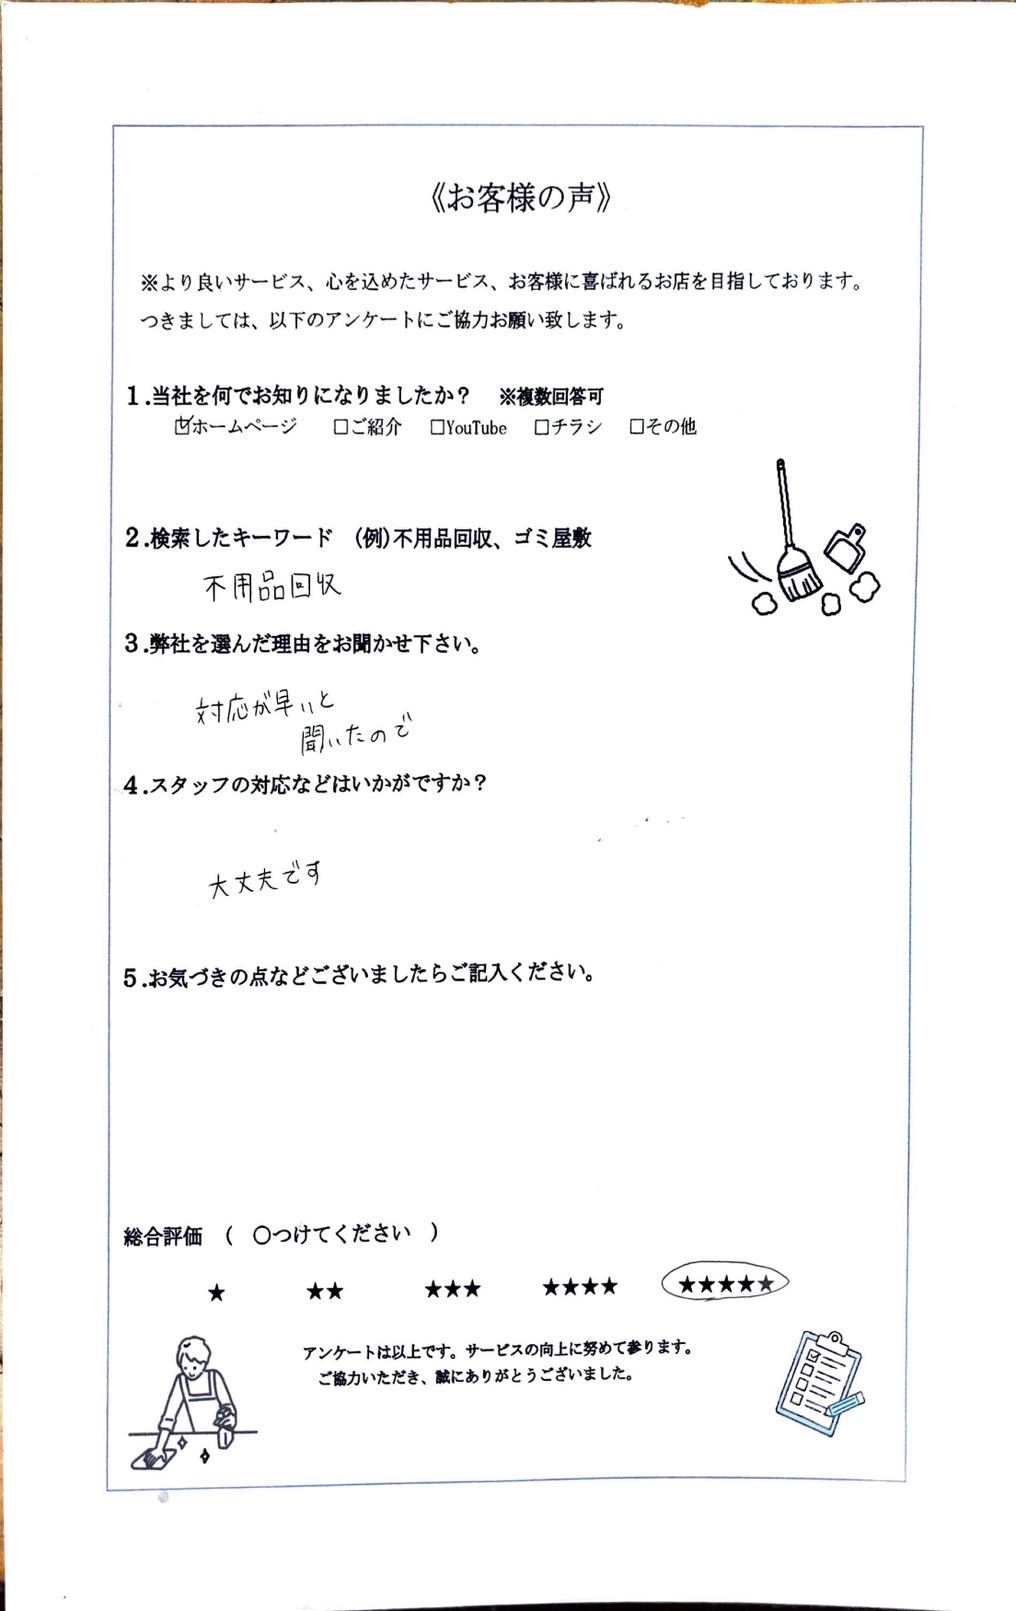 《お客様の声》
※より良いサービス、心を込めたサービス、お客様に喜ばれるお店を目指しております。
つきましては、以下のアンケートにご協力お願い致します。
1.当社を何でお知りになりましたか？　※複数回答可
☑ホームページ　□ご紹介　□YouTube　□チラシ　□その他
2.検索したキーワード　(例)不用品回収、ゴミ屋敷
不用品回収
3.弊社を選んだ理由をお聞かせ下さい。
対応が早いと
聞いたので
4.スタッフの対応などはいかがですか？
大丈夫です
5.お気づきの点などございましたらご記入ください。
総合評価　(　〇つけてください　)
★　★★　★★★　★★★★　★★★★★
アンケートは以上です。サービスの向上に努めて参ります。
ご協力いただき、誠にありがとうございました。